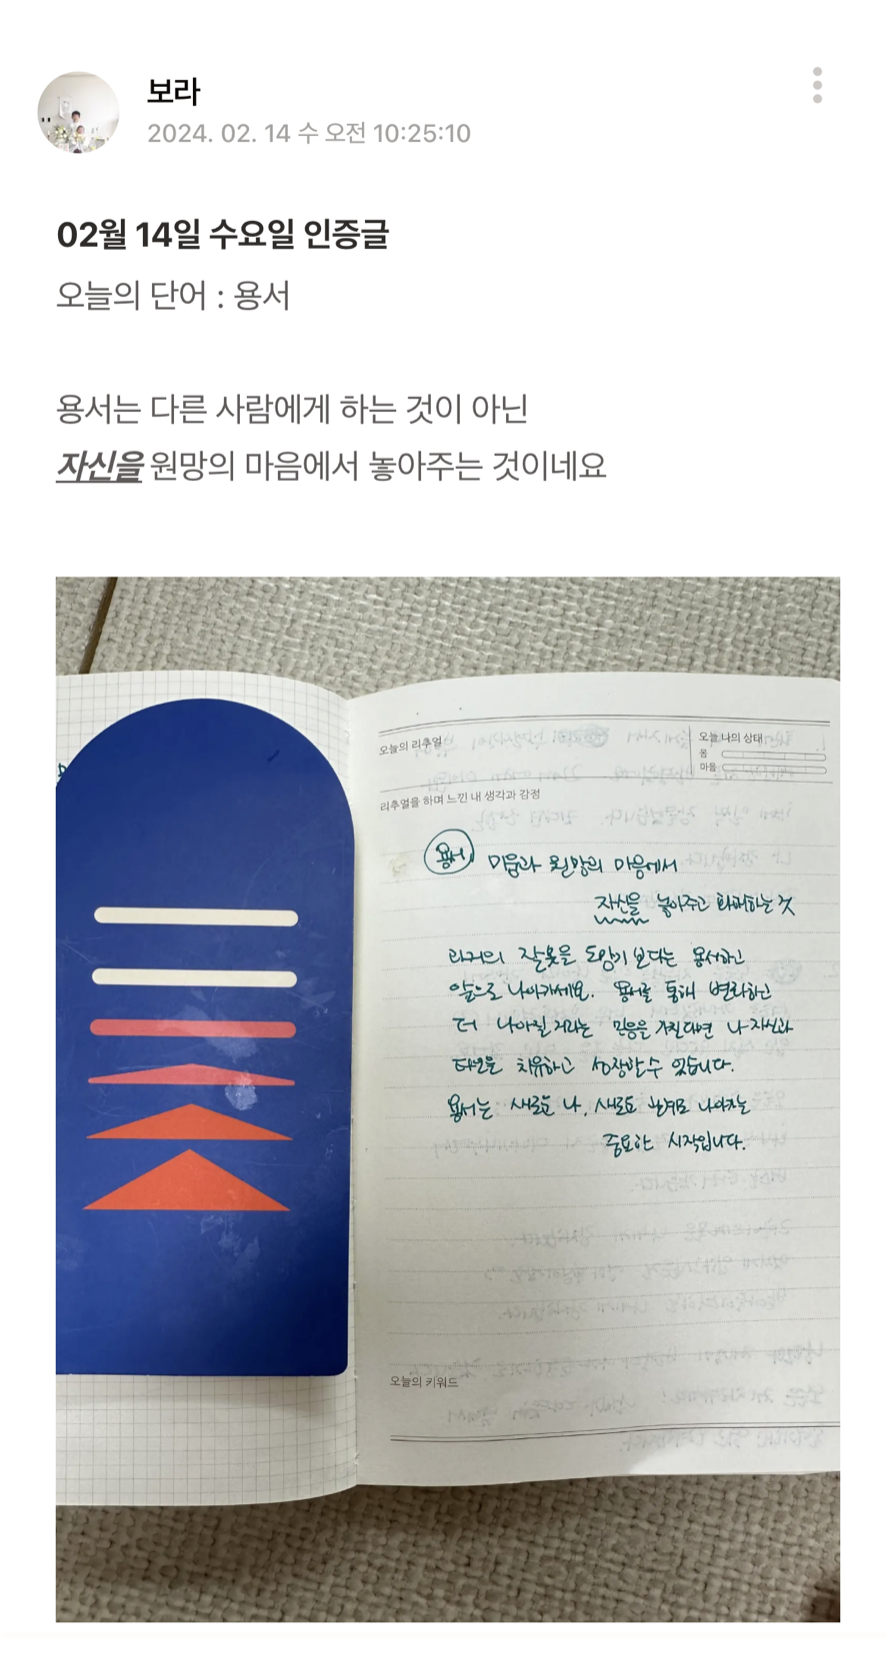 보라
2024. 02. 14 수 오전 10:25:10
02월 14일 수요일 인증글
오늘의 단어 : 용서
용서는 다른 사람에게 하는 것이 아닌
자신을 원망의 마음에서 놓아주는 것이네요
오늘의 리추얼
오늘 나의 상태
몸
마음
리추얼을 하며 느낀 내 생각과 감정
용서 미움과 원망의 마음에서
자신을 놓아주고 화해하는 것
과거의 잘못을 도망이 보다는 용서하고
앞으로 나아가세요. 용서를 통해 변화하고
더 나아질 거라는 믿음을 가진다면 나 자신과
타인을 치유하고 성장할 수 있습니다.
용서는 새로운 나, 새로운 관계로 나아가는
중요한 시작입니다.
오늘의 키워드